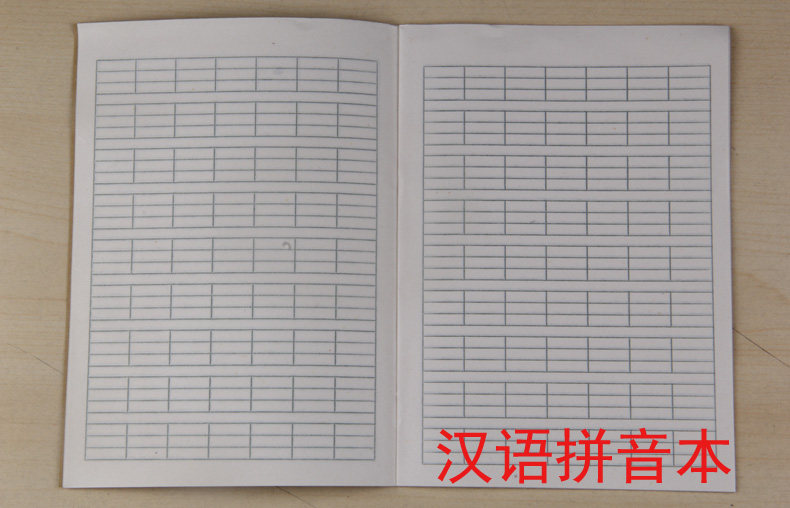 汉语拼音本